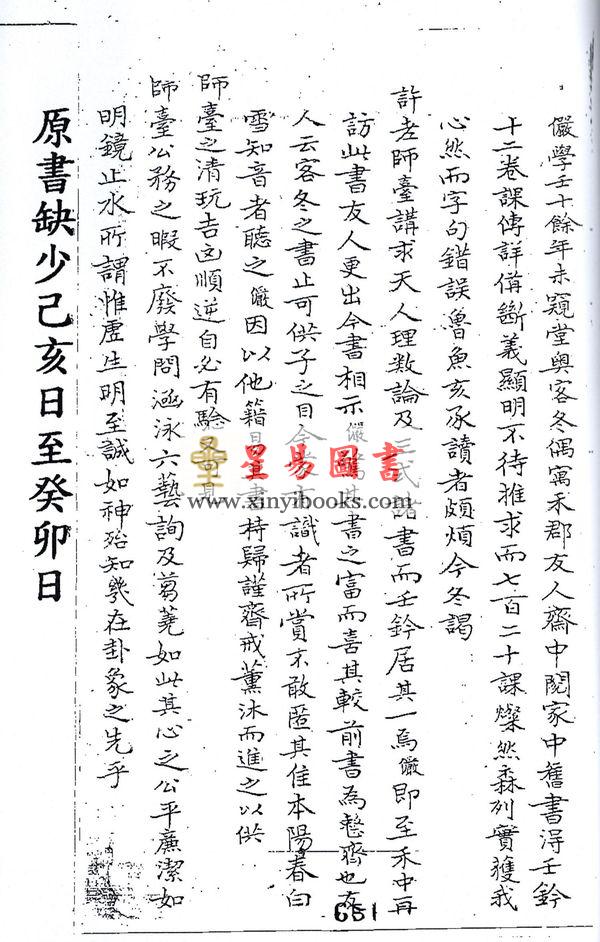 儼學壬十餘年未窺堂奧客冬偶寓禾郡友人齋中閱家中舊書淂壬鈐
十二卷課傳詳俻斷義顯明不待推求而七百二十課燦然森列實獲我
心然而字句錯誤魯魚亥豕讀者頗煩今冬謁
許老師臺講求天人理數論及三式諸書而壬鈐居其一焉儼即至禾中再
訪此書友人更出今書相示儼驚其書之富而喜其較前書為整齊也友
人云客冬之書止可供子之目今書識者所賞不敢匿其佳本陽春白
雪知音者聽之儼因以他籍易書持歸謹齋戒薰沐而進之以供
師臺之清玩吉凶順逆自必有驗
師臺公務之暇不廢學問涵泳六藝詢及蒭蕘如此其心之公平廉潔如
明鏡止水所謂惟虛生明至誠如神殆知幾在卦象之先乎
原書缺少己亥日至癸卯日
星易圖書
www.xinyibooks.com
651